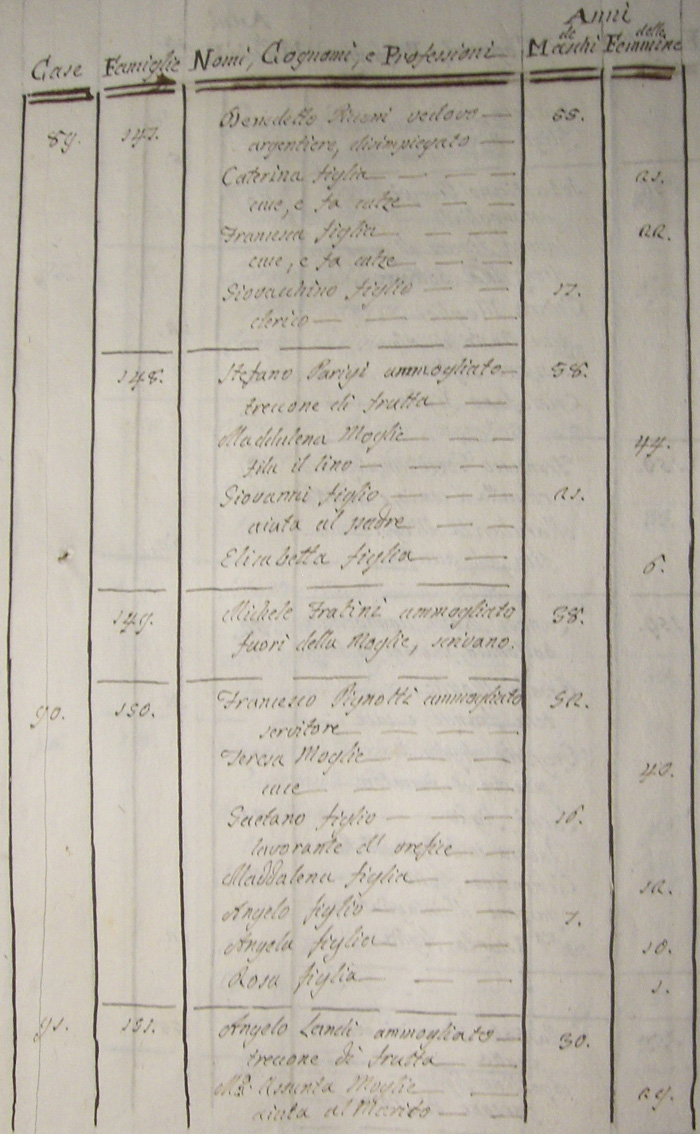 Anni
Case Famiglie Nomi, Cognomi, e Professioni de Maschi delle Femmine
89. 147. Benedetto vedovo 55.
argentiere, disimpiegato
Caterina figlia 21.
cuce, e fa calze
Francesca figlia 22.
cuce, e fa calze
Giovacchino figlio 17.
clerico
148. Stefano Parigi ammogliato 58.
treccone di frutta
Maddalena Moglie 44.
fila il lino
Giovanni figlio 21.
aiuta al padre
Elisabetta figlia 6.
149. Michele Fratini ammogliato 38.
fuori della Moglie, scrivano.
90. 150. Francesco Pignotti ammogliato 52.
servitore
Teresa Moglie 40.
cuce
Gaetano figlio 16.
lavorante d'orefice
Maddalena figlia 12.
Angelo figlio 7.
Angela figlia 10.
Rosa figlia 1.
91. 151. Angelo Landi ammogliato 30.
treccone di frutta
Mª. Assunta Moglie 29.
aiuta al Marito